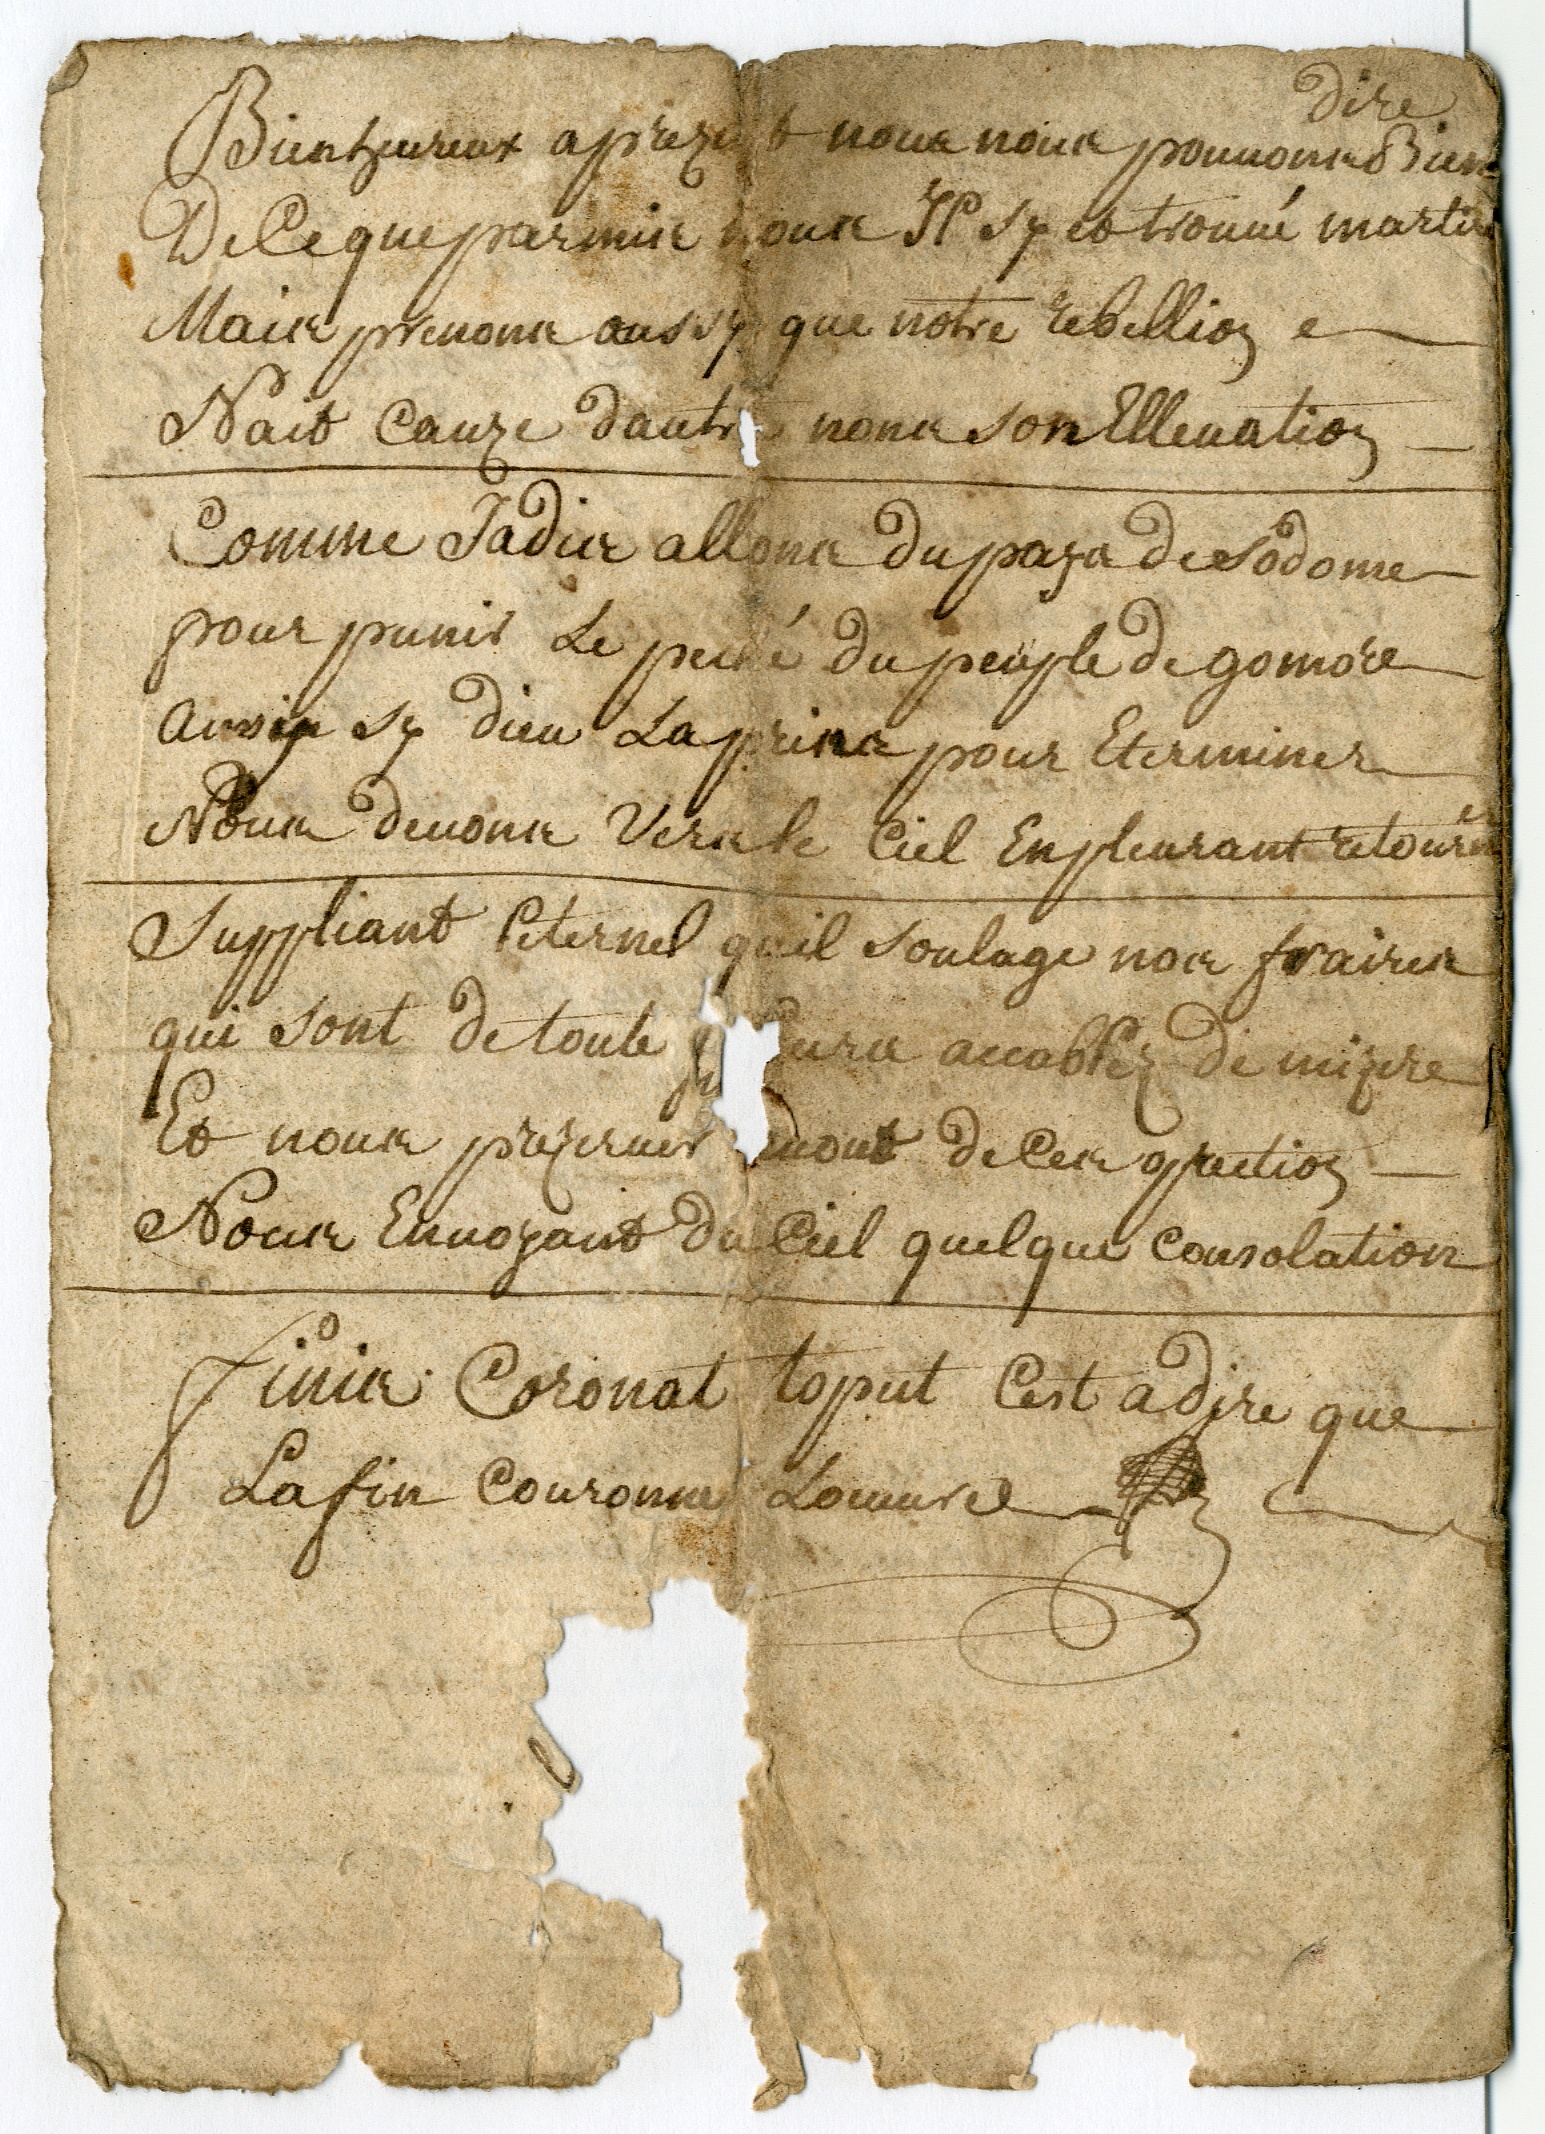 dire
Bienheureux aprezent nous nous pouvons Bien
De Ce que parmis nous Il sy est trouvé martire
Mais prenons aussy que notre rebellion e
Nait Cauze dautre nous son Ellevation
Comme Jadis allons du pays de Sodome
pour punir Le peché du peuple de gomore
Aussy sy dieu La pris pour Eterminer
Nous devons Vers le Ciel En pleurant retourn
Suppliant leternel quil soulage nos fraires
qui sont de toute accablez de mizere
Et nous prezerver de Ces
Nous Envoyant du Ciel quelque Consolation
Finis Coronat toput Cest a dire que
La fin Couronne Louuvre